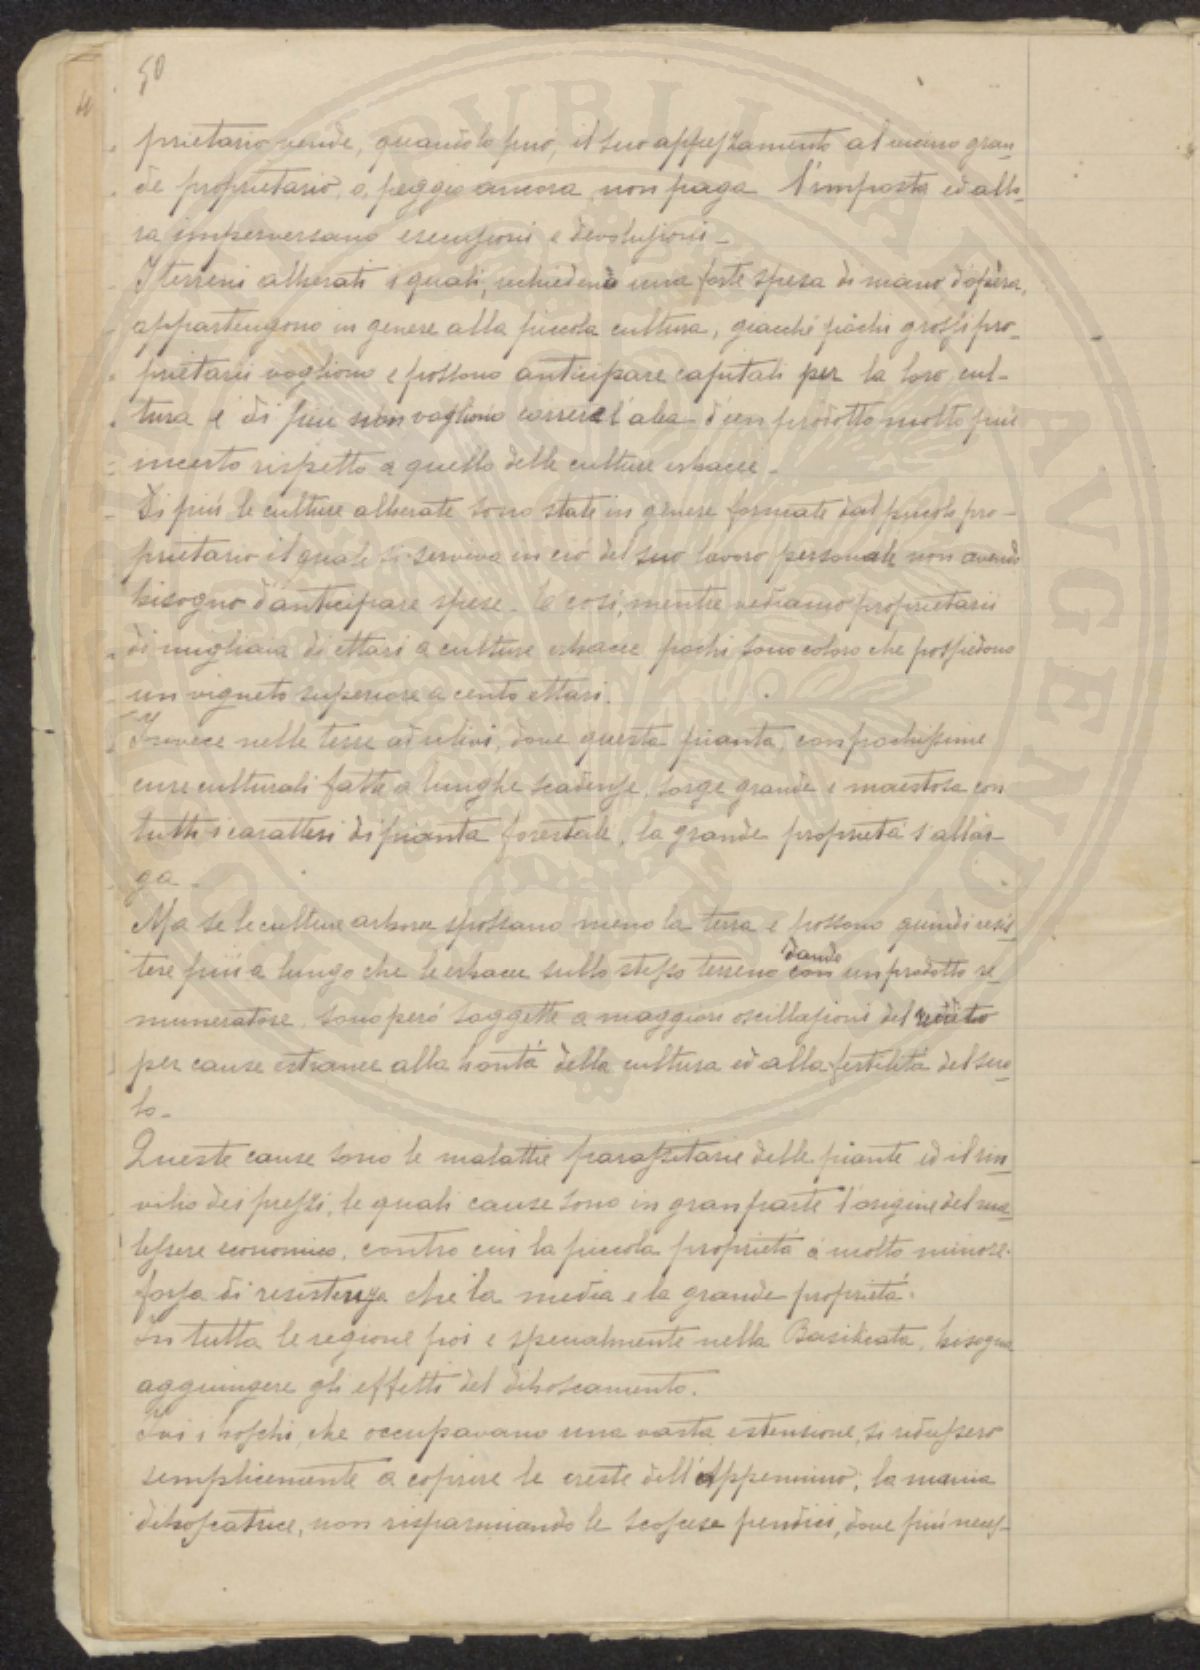 50
prietario vende, quando lo può, il suo appezzamento al vicino gran-
de proprietario, o, peggio ancora, non paga l'imposta ed allo-
ra imperversano esecuzioni e devoluzioni -
I terreni alberati i quali, richiedono una forte spesa di mano d'opera,
appartengono in genere alla piccola cultura, giacchè pochi grossi pro-
prietarii vogliono e possono anticipare capitali per la loro cul-
tura e di più non vogliono correre l'alea d'un prodotto molto più
incerto rispetto a quello delle culture erbacee -
Di più le culture alberate sono state in genere formate dal piccolo pro-
prietario il quale si serviva in ciò del suo lavoro personale non avendo
bisogno d'anticipare spese. E così, mentre vediamo proprietarii
di migliaia di ettari a culture erbacee pochi sono coloro che possiedono
un vigneto superiore a cento ettari.
Invece nelle terre ad ulivi, dove questa pianta, con pochissime
cure culturali fatte a lunghe scadenze, sorge grande e maestosa con
tutti i caratteri di pianta forestale, la grande proprietà s'allar-
ga -
Ma se le culture arboree spossano meno la terra e possono quindi resis-
tere più a lungo che le erbacee sullo stesso terreno dando con un prodotto re-
muneratore, sono però soggette a maggiori oscillazioni del reddito
per cause estranee alla bontà della cultura ed alla fertilità del suo-
lo -
Queste cause sono le malattie parassitarie delle piante ed il rin-
vilio dei prezzi, le quali cause sono in gran parte l'origine del ma-
lessere economico, contro cui la piccola proprietà à molto minore
forza di resistenza che la media e la grande proprietà.
In tutta la regione poi e specialmente nella Basilicata, bisogna
aggiungere gli effetti del diboscamento.
Ivi i boschi, che occupavano una vasta estensione, si ridussero
semplicemente a coprire le creste dell'Appennino; la mania
diboscatrice, non risparmiando le scoscese pendici, dove più neces-